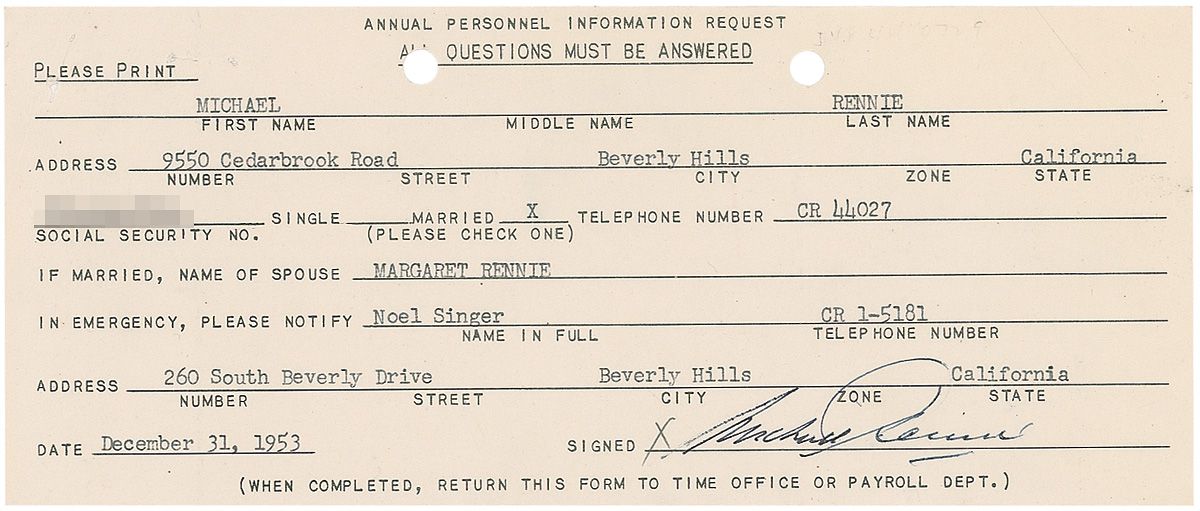 ANNUAL PERSONNEL INFORMATION REQUEST
ALL QUESTIONS MUST BE ANSWERED
PLEASE PRINT
MICHAEL RENNIE
FIRST NAME MIDDLE NAME LAST NAME
ADDRESS 9550 Cedarbrook Road Beverly Hills California
NUMBER STREET CITY ZONE STATE
SINGLE MARRIED X TELEPHONE NUMBER CR 44027
SOCIAL SECURITY NO. (PLEASE CHECK ONE)
IF MARRIED, NAME OF SPOUSE MARGARET RENNIE
IN EMERGENCY, PLEASE NOTIFY Noel Singer CR 1-5181
NAME IN FULL TELEPHONE NUMBER
ADDRESS 260 South Beverly Drive Beverly Hills California
NUMBER STREET CITY ZONE STATE
DATE December 31, 1953 SIGNED X Michael Rennie
(WHEN COMPLETED, RETURN THIS FORM TO TIME OFFICE OR PAYROLL DEPT.)